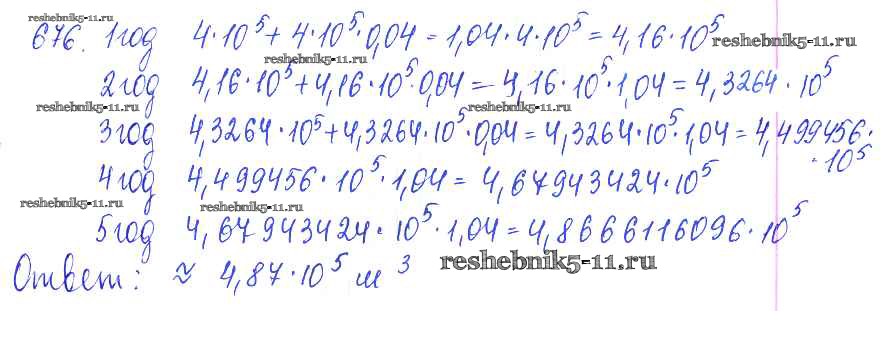 reshebnik5-11.ru
676. 1 год 4·10⁵ + 4·10⁵·0,04 = 1,04·4·10⁵ = 4,16·10⁵ reshebnik5-11.ru
reshebnik5-11.ru
2 год 4,16·10⁵ + 4,16·10⁵·0,04 = 4,16·10⁵·1,04 = 4,3264·10⁵
reshebnik5-11.ru reshebnik5-11.ru
3 год 4,3264·10⁵ + 4,3264·10⁵·0,04 = 4,3264·10⁵·1,04 = 4,499456·
·10⁵
4 год 4,499456·10⁵·1,04 = 4,67943424·10⁵
reshebnik5-11.ru reshebnik5-11.ru
5 год 4,67943424·10⁵·1,04 = 4,8666116096·10⁵
Ответ: ≈ 4,87·10⁵ м³ reshebnik5-11.ru